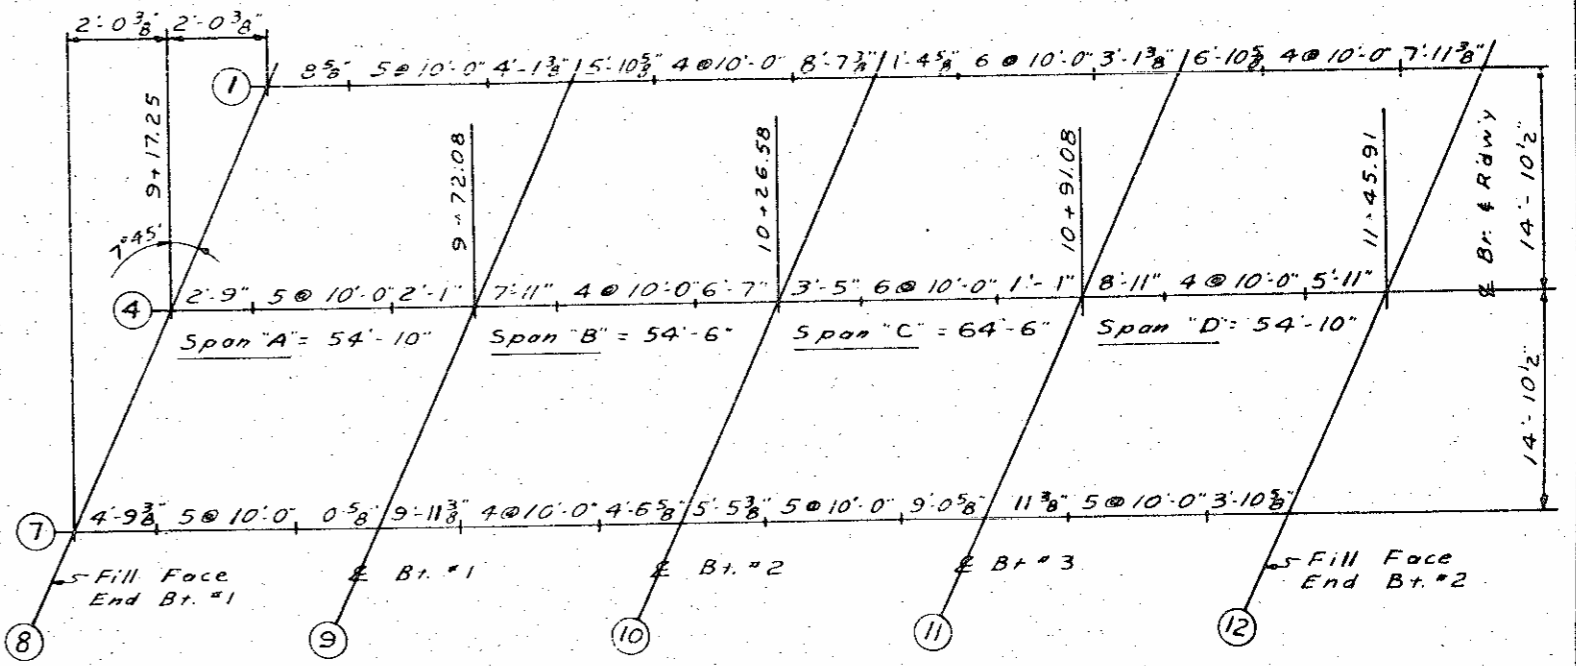 2'-0 3/8" 2'-0 3/8"
1 8 5/8" 5 @ 10'-0" 4'-1 3/8" 5'-10 5/8" 4 @ 10'-0" 8'-7 3/8" 1'-4 5/8" 6 @ 10'-0" 3'-1 3/8" 6'-10 5/8" 4 @ 10'-0" 7'-11 3/8"
9+17.25
9+72.08
10+26.58
10+91.08
11+45.91
℄ Br. & Rdwy
14'-10 1/2"
7°45'
4 2'-9" 5 @ 10'-0" 2'-1" 7'-11" 4 @ 10'-0" 6'-7" 3'-5" 6 @ 10'-0" 1'-1" 8'-11" 4 @ 10'-0" 5'-11"
Span "A" = 54'-10" Span "B" = 54'-6" Span "C" = 64'-6" Span "D" = 54'-10"
14'-10 1/2"
7 4'-9 3/8" 5 @ 10'-0" 0 5/8" 9'-11 3/8" 4 @ 10'-0" 4'-6 5/8" 5'-5 3/8" 5 @ 10'-0" 9'-0 5/8" 11 3/8" 5 @ 10'-0" 3'-10 5/8"
Fill Face
End Bt. #1
℄ Bt. #1
℄ Bt. #2
℄ Bt #3
Fill Face
End Bt. #2
8 9 10 11 12